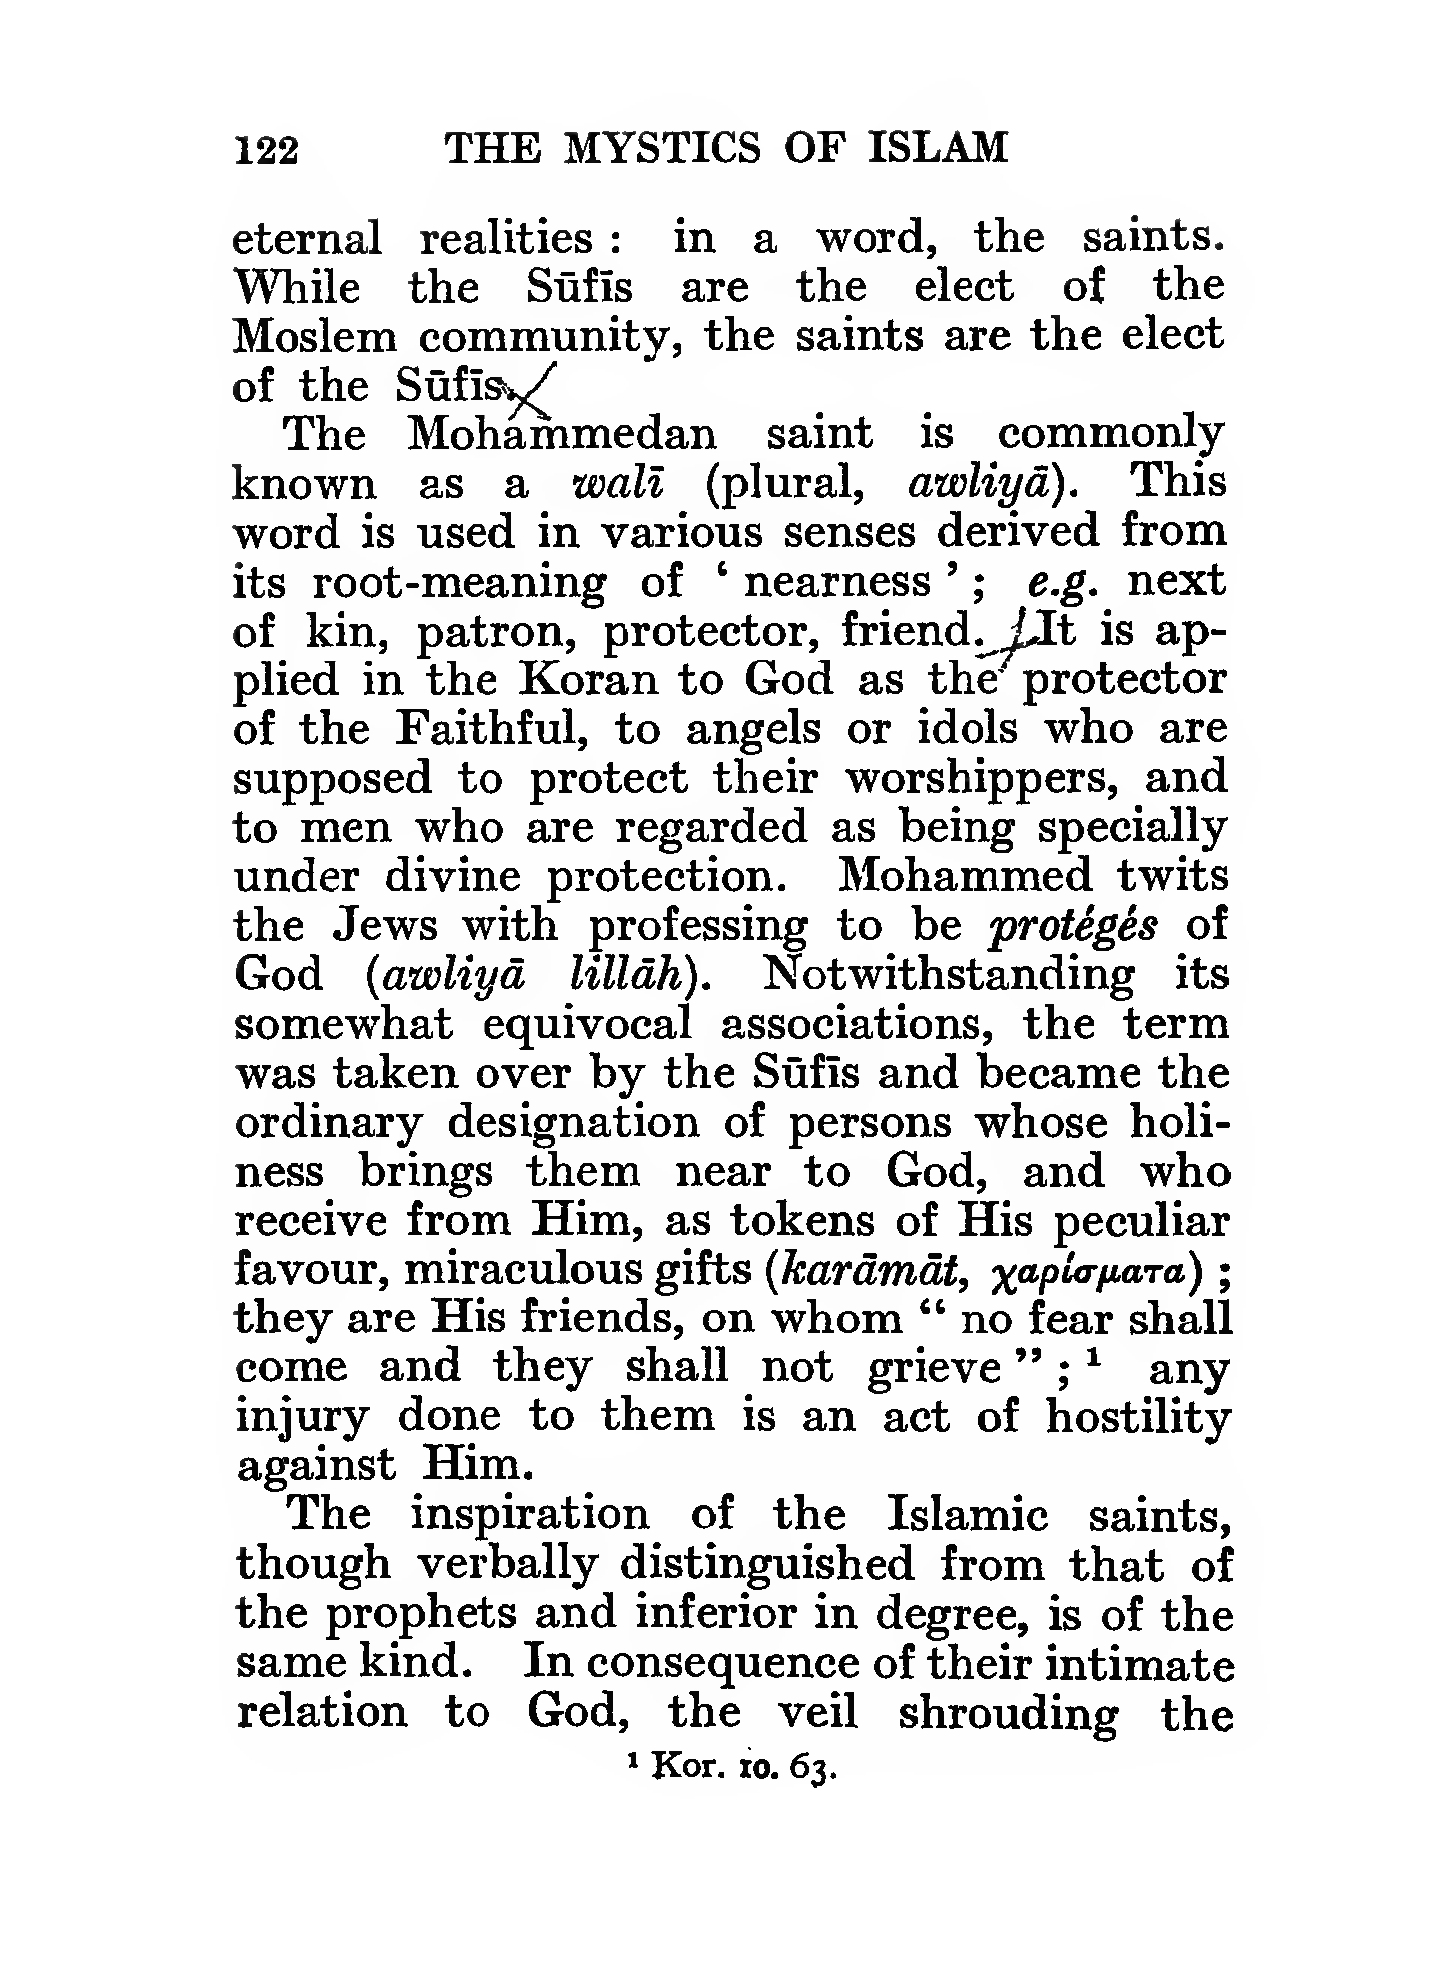 122 THE MYSTICS OF ISLAM
eternal realities : in a word, the saints.
While the Sūfīs are the elect of the
Moslem community, the saints are the elect
of the Sūfīs.
The Mohammedan saint is commonly
known as a walī (plural, awliyā). This
word is used in various senses derived from
its root-meaning of ‘ nearness ’ ; e.g. next
of kin, patron, protector, friend. It is ap-
plied in the Koran to God as the protector
of the Faithful, to angels or idols who are
supposed to protect their worshippers, and
to men who are regarded as being specially
under divine protection. Mohammed twits
the Jews with professing to be protégés of
God (awliyā lillāh). Notwithstanding its
somewhat equivocal associations, the term
was taken over by the Sūfīs and became the
ordinary designation of persons whose holi-
ness brings them near to God, and who
receive from Him, as tokens of His peculiar
favour, miraculous gifts (karāmāt, χαρίσματα) ;
they are His friends, on whom “ no fear shall
come and they shall not grieve ” ; ¹ any
injury done to them is an act of hostility
against Him.
The inspiration of the Islamic saints,
though verbally distinguished from that of
the prophets and inferior in degree, is of the
same kind. In consequence of their intimate
relation to God, the veil shrouding the
¹ Kor. 10. 63.